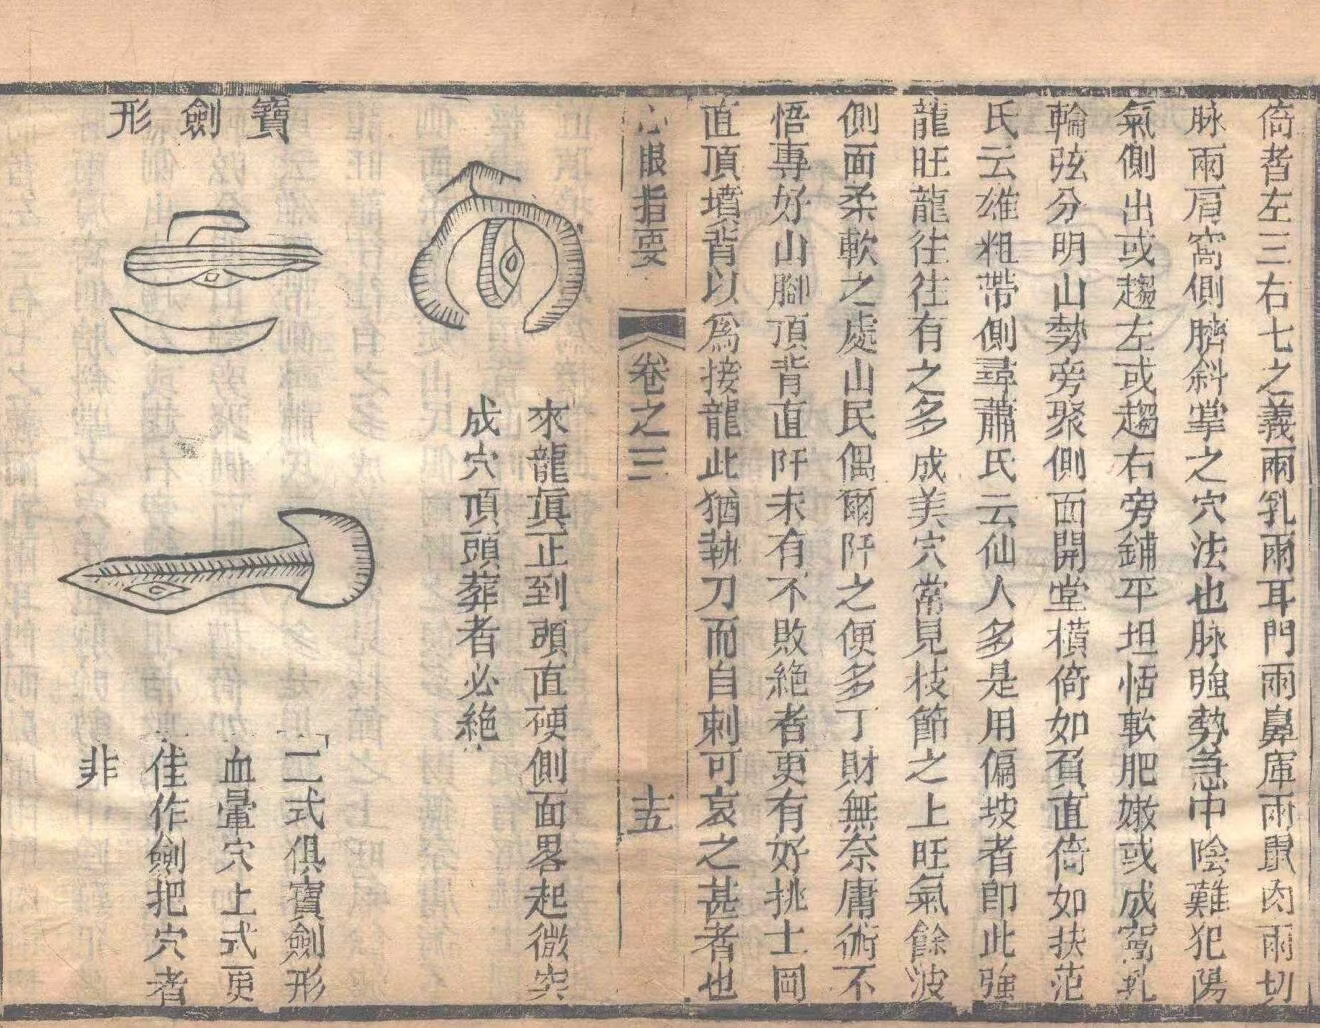 倚者左三右七之義兩乳兩耳門兩鼻庫兩鼠肉兩切
脉兩肩窩側臍斜掌之穴法也脉強勢急中陰難犯陽
氣側出或趨左或趨右旁鋪平坦恬軟肥嫩或成窩乳
輪弦分明山勢旁聚側面開堂橫倚如負直倚如扶范
氏云雄粗帶側尋蕭氏云仙人多是用偏坡者卽此強
龍旺龍往往有之多成美穴常見枝節之上旺氣餘波
側面柔軟之處山民偶爾阡之便多丁財無奈庸術不
悟專好山腳頂背直阡未有不敗絶者更有好挑土岡
直頂墳背以爲接龍此猶執刀而自刺可哀之甚者也
心眼指要
卷之三
十五
來龍眞正到頭直硬側面畧起微突
成穴頂頭葬者必絶
寶劍形
二式俱寶劍形
血暈穴上式更
佳作劍把穴者
非